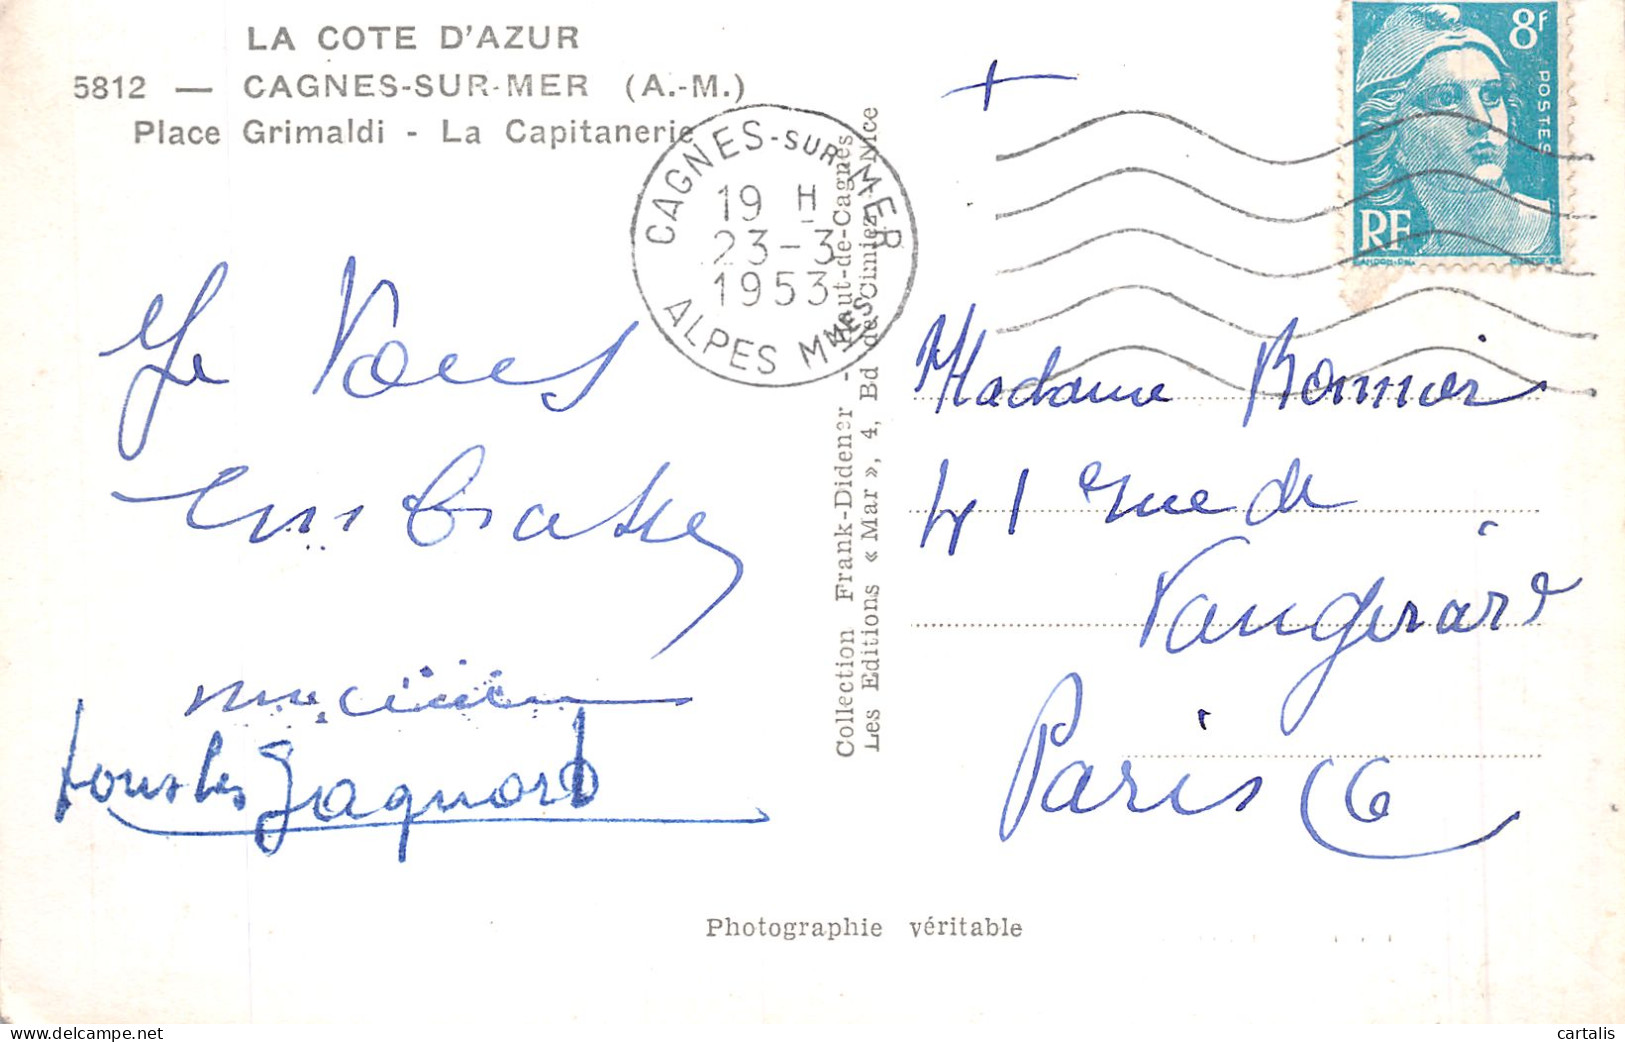 LA COTE D'AZUR
5812 — CAGNES-SUR-MER (A.-M.)
Place Grimaldi - La Capitanerie
CAGNES-SUR-MER
19 H
23-3
1953
ALPES MMES
8F
POSTES
RF
Collection Frank-Didener - Haut-de-Cagnes
Les Editions « Mar », 4, Bd de Cimiez - Nice
Je Vous
embrasse
tous les Gagnard
Madame Bonnier
41 rue de
Vaugirard
Paris (6
Photographie véritable
www.delcampe.net
cartalis